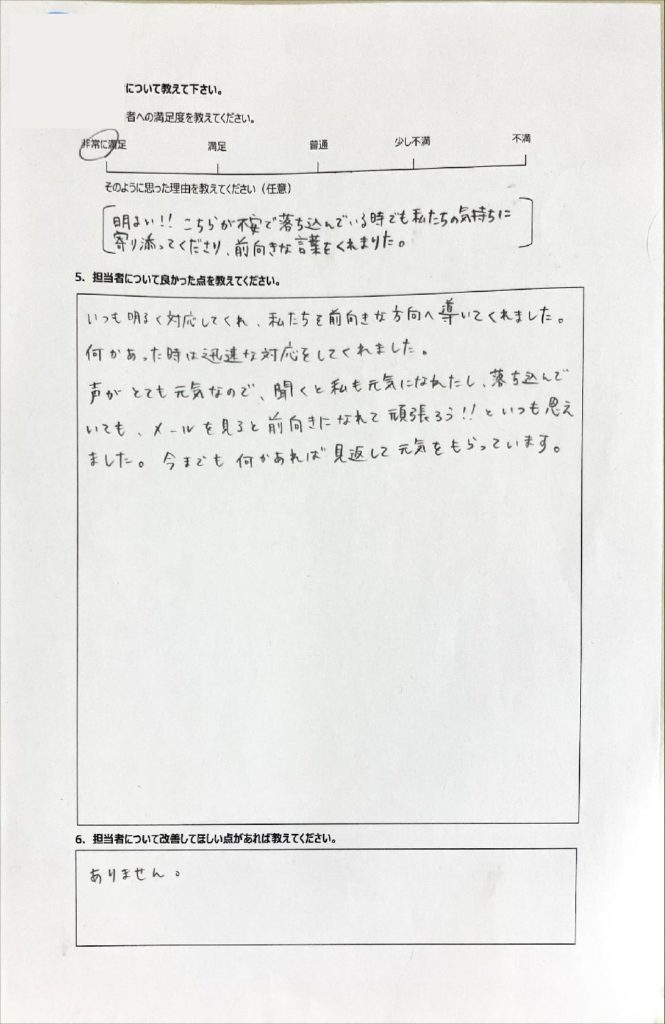 について教えて下さい。
者への満足度を教えてください。
非常に満足 満足 普通 少し不満 不満
そのように思った理由を教えてください（任意）
明るい!! こちらが不安で落ち込んでいる時でも私たちの気持ちに
寄り添ってくださり、前向きな言葉をくれました。
5．担当者について良かった点を教えてください。
いつも明るく対応してくれ、私たちを前向きな方向へ導いてくれました。
何かあった時は迅速な対応をしてくれました。
声がとても元気なので、聞くと私も元気になれたし、落ち込んで
いても、メールを見ると前向きになれて頑張ろう!!といつも思え
ました。今までも何かあれば見返して元気をもらっています。
6．担当者について改善してほしい点があれば教えてください。
ありません。